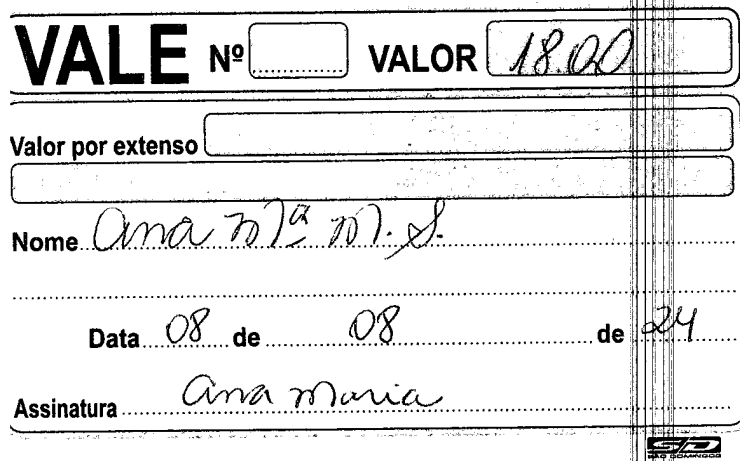 VALE Nº VALOR 18.00
Valor por extenso
Nome Ana Mª M. S.
Data 08 de 08 de 24
Assinatura Ana Maria
SD
SÃO DOMINGOS